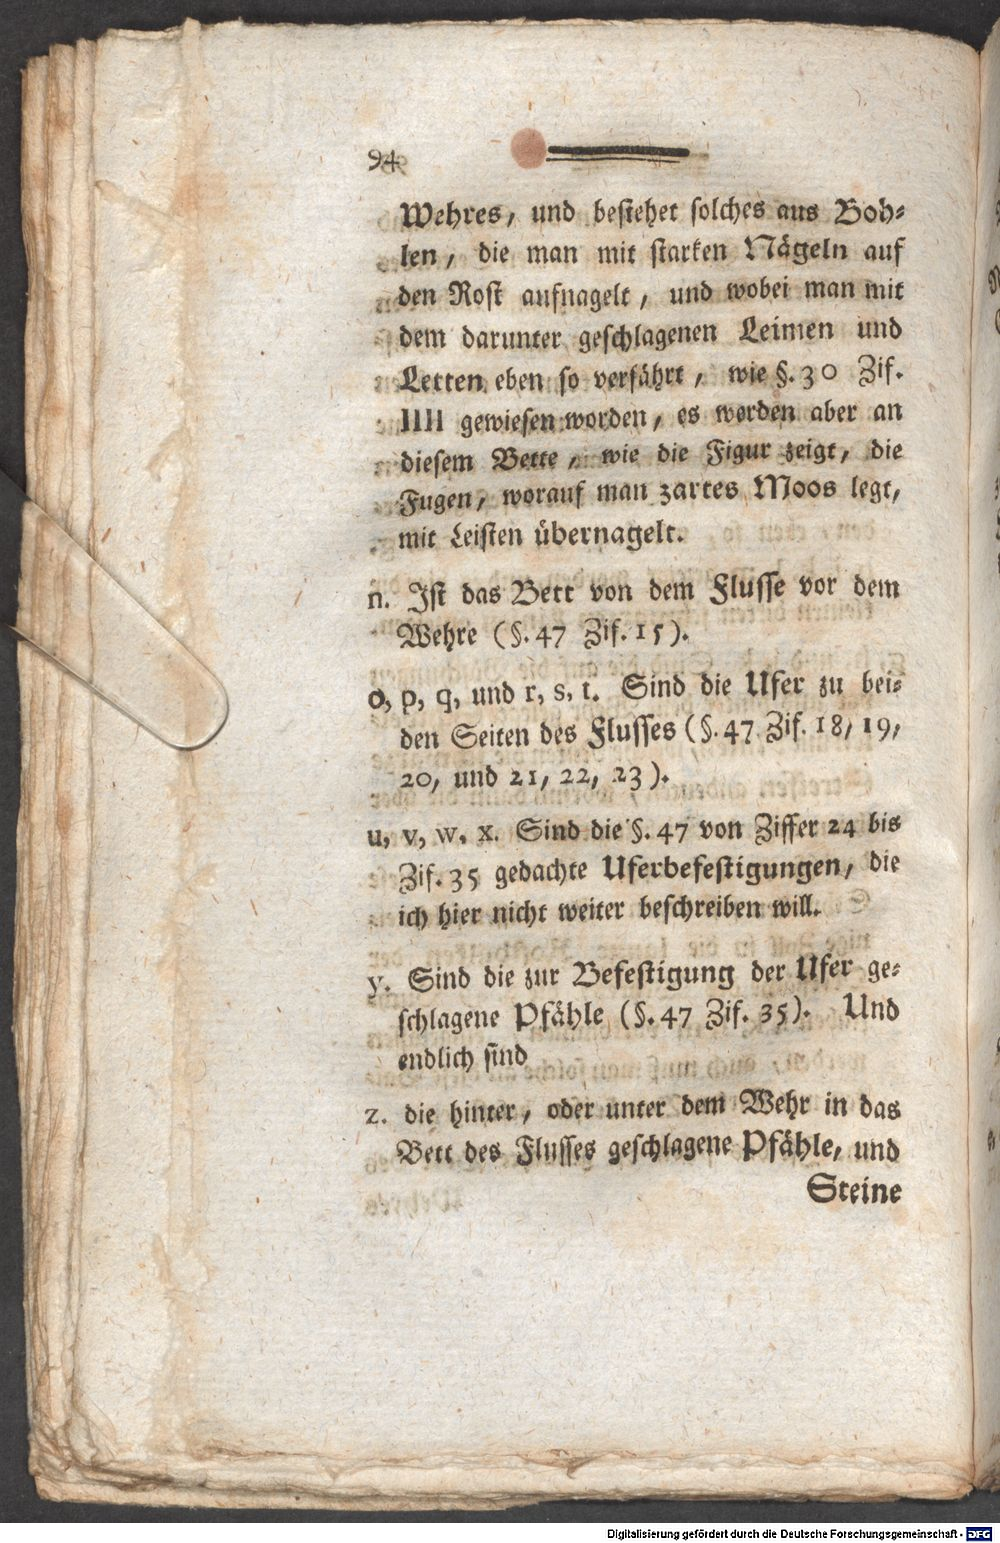 94
Wehres, und bestehet solches aus Boh-
len, die man mit starken Nägeln auf
den Rost aufnagelt, und wobei man mit
dem darunter geschlagenen Leimen und
Letten eben so verfährt, wie §. 30 Zif.
IIII gewiesen worden, es werden aber an
diesem Bette, wie die Figur zeigt, die
Fugen, worauf man zartes Moos legt,
mit Leisten übernagelt.
n. Ist das Bett von dem Flusse vor dem
Wehre (§. 47 Zif. 15).
o, p, q, und r, s, t. Sind die Ufer zu bei-
den Seiten des Flusses (§. 47 Zif. 18, 19,
20, und 21, 22, 23).
u, v, w, x. Sind die §. 47 von Ziffer 24 bis
Zif. 35 gedachte Uferbefestigungen, die
ich hier nicht weiter beschreiben will.
y. Sind die zur Befestigung der Ufer ge-
schlagene Pfähle (§. 47 Zif. 35). Und
endlich sind
z. die hinter, oder unter dem Wehr in das
Bett des Flusses geschlagene Pfähle, und
Steine
Digitalisierung gefördert durch die Deutsche Forschungsgemeinschaft - DFG